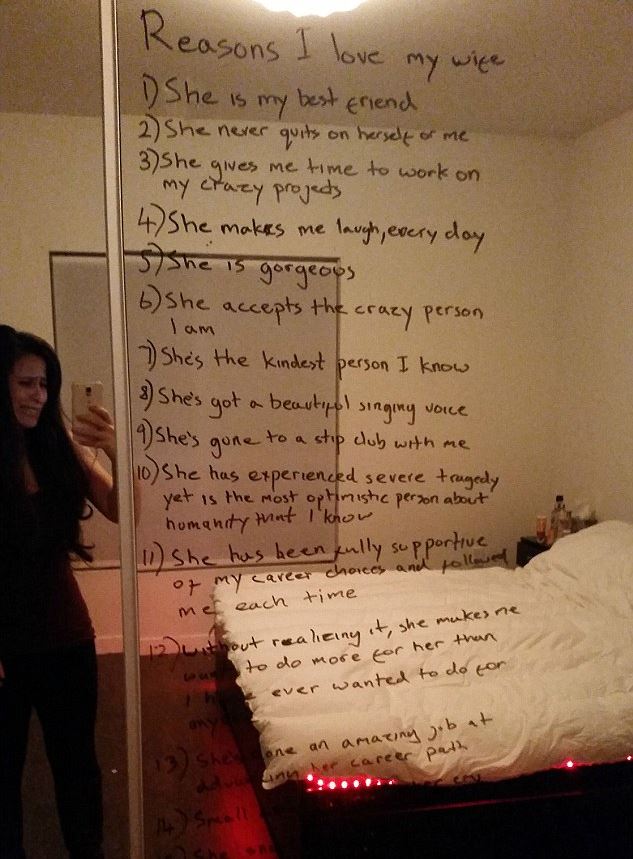 Reasons I love my wife
1) She is my best friend
2) She never quits on herself or me
3) She gives me time to work on
my crazy projects
4) She makes me laugh, every day
5) She is gorgeous
6) She accepts the crazy person
I am
7) She's the kindest person I know
8) She's got a beautiful singing voice
9) She's gone to a strip club with me
10) She has experienced severe tragedy
yet is the most optimistic person about
humanity that I know
11) She has been fully supportive
of my career choices and followed
me each time
12) Without realizing it, she makes me
want to do more for her than
I have ever wanted to do for
13) She's done an amazing job at
advancing her career path
her cry
14) Small
She